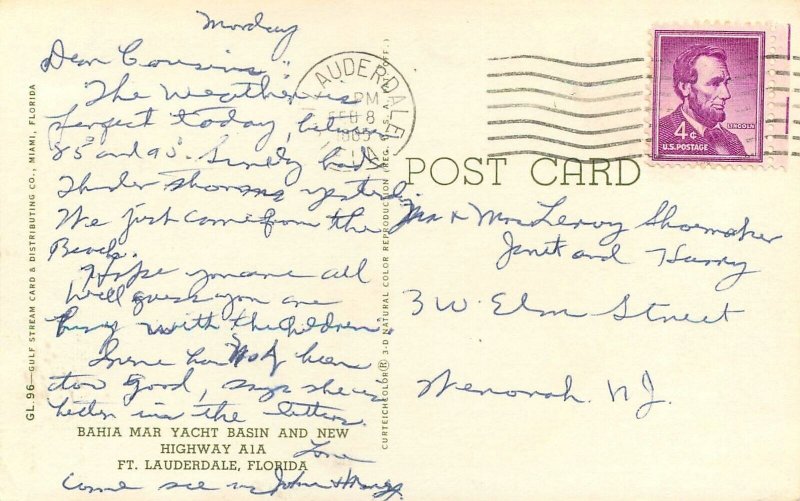 Monday
Dear Cousins,
The weather is
perfect today, between
85 and 90. Surely had
thunder storms yesterday.
We just came from the
Beach.
Hope you are all
well guess you are
busy with the children.
Irene has not been
too good, says she is
in the letters.
Love
Come see us John &
GL. 96—GULF STREAM CARD & DISTRIBUTING CO., MIAMI, FLORIDA
BAHIA MAR YACHT BASIN AND NEW
HIGHWAY A1A
FT. LAUDERDALE, FLORIDA
CURTEICHCOLOR® 3-D NATURAL COLOR REPRODUCTION (REG. U.S.
AUDERDALE
PM
FEB 8
4¢
LINCOLN
U.S. POSTAGE
POST CARD
Mr & Mrs Leroy Shoemaker
Janet and Harry
3 W. Elm Street
Wenonah. N J.